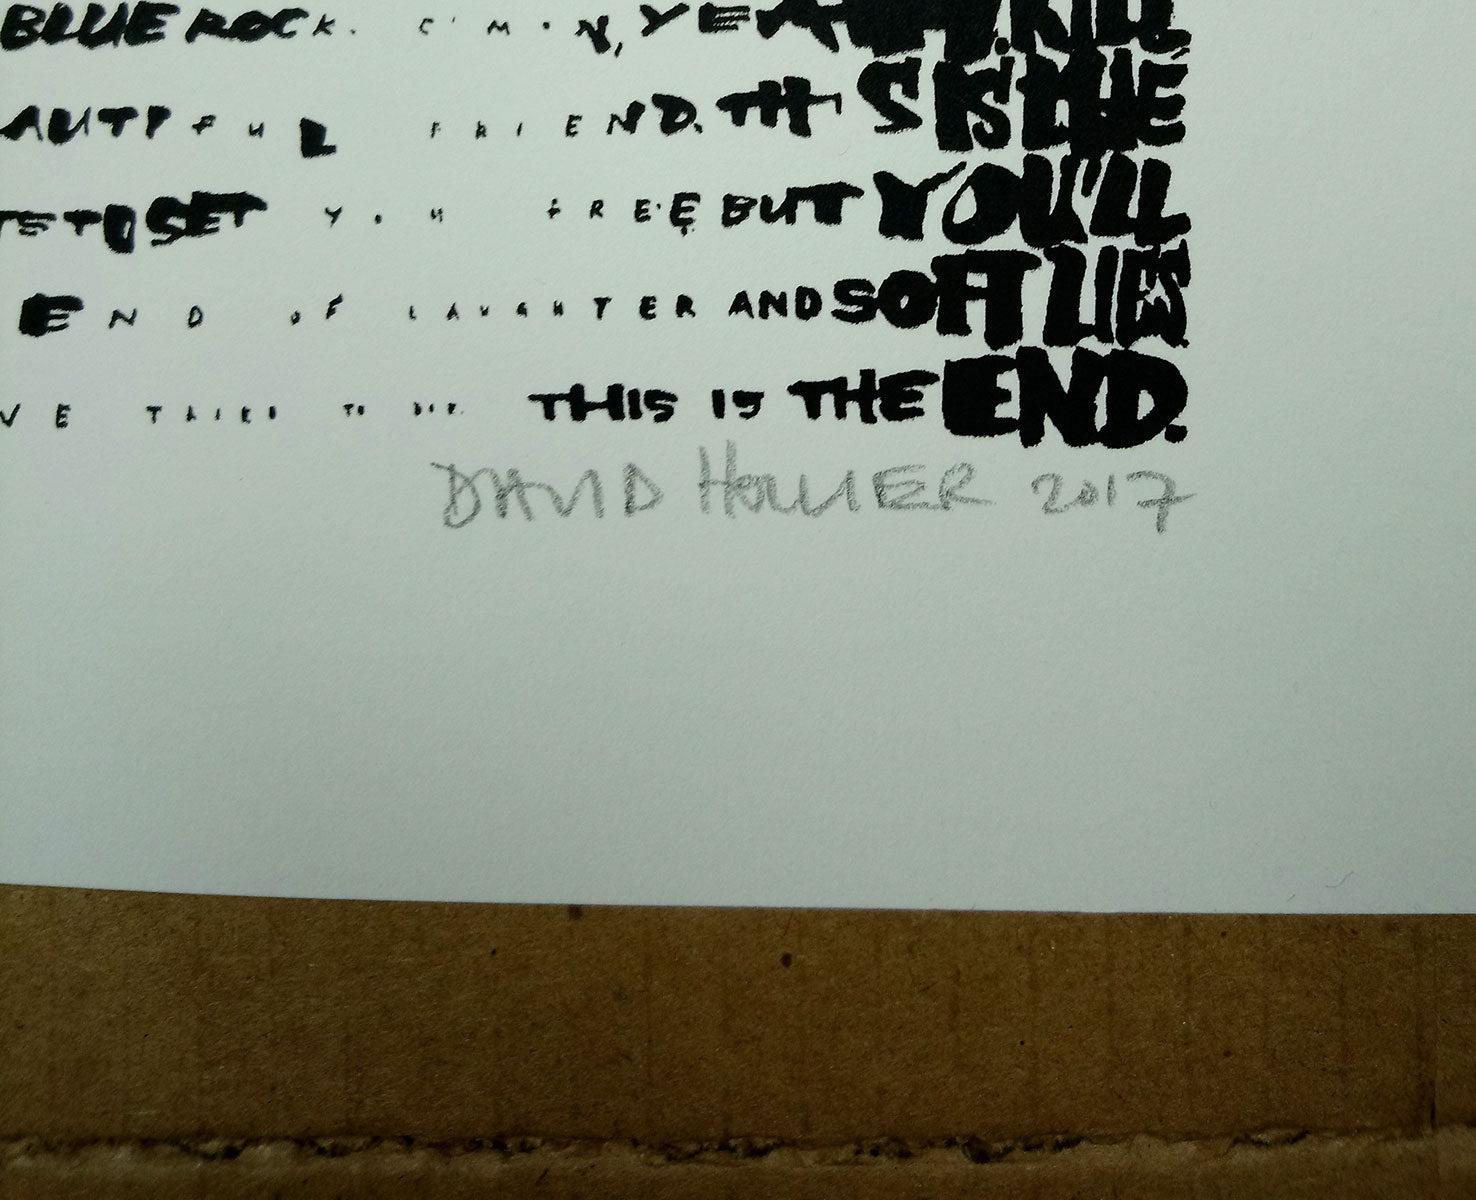 BLUE ROCK. C'M·N, YEAH, KILL
AUTIFUL FRIEND. THIS IS THE
TO SET YOU FREE BUT YOU'LL
END OF LAUGHTER AND SOFT LIES.
VE TRIED TO DIE. THIS IS THE END.
DAVID HOLLIER 2017